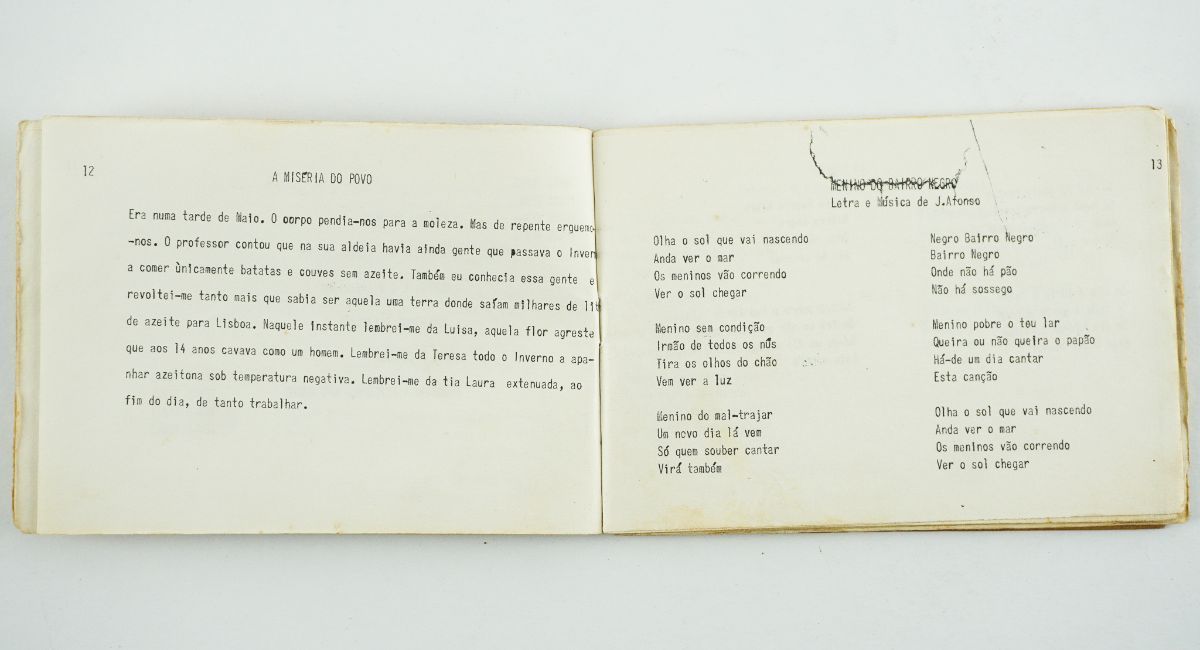 12
A MISÉRIA DO POVO
Era numa tarde de Maio. O corpo pendia-nos para a moleza. Mas de repente erguemo-
-nos. O professor contou que na sua aldeia havia ainda gente que passava o Invern
a comer ùnicamente batatas e couves sem azeite. Também eu conhecia essa gente e
revoltei-me tanto mais que sabia ser aquela uma terra donde saíam milhares de lit
de azeite para Lisboa. Naquele instante lembrei-me da Luisa, aquela flor agreste
que aos 14 anos cavava como um homem. Lembrei-me da Teresa todo o Inverno a apa-
nhar azeitona sob temperatura negativa. Lembrei-me da tia Laura extenuada, ao
fim do dia, de tanto trabalhar.
13
MENINO DO BAIRRO NEGRO
Letra e Música de J.Afonso
Olha o sol que vai nascendo
Anda ver o mar
Os meninos vão correndo
Ver o sol chegar
Menino sem condição
Irmão de todos os nús
Tira os olhos do chão
Vem ver a luz
Menino do mal-trajar
Um novo dia lá vem
Só quem souber cantar
Virá também
Negro Bairro Negro
Bairro Negro
Onde não há pão
Não há sossego
Menino pobre o teu lar
Queira ou não queira o papão
Há-de um dia cantar
Esta canção
Olha o sol que vai nascendo
Anda ver o mar
Os meninos vão correndo
Ver o sol chegar